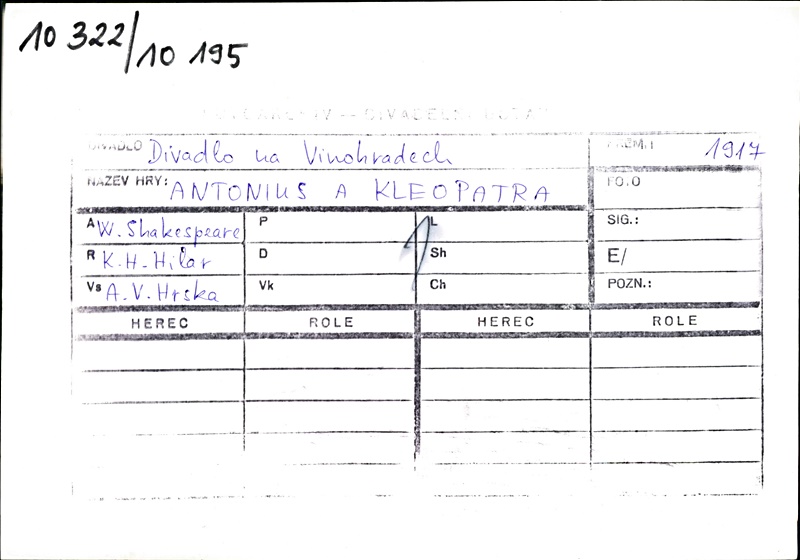 10 322/10 195
DIVADLO Divadlo na Vinohradech 1917
NÁZEV HRY: ANTONIUS A KLEOPATRA FO.O
A W. Shakespeare P L SIG.:
R K. H. Hilar D Sh E/
Vs A. V. Hrska Vk Ch POZN.:
HEREC ROLE HEREC ROLE